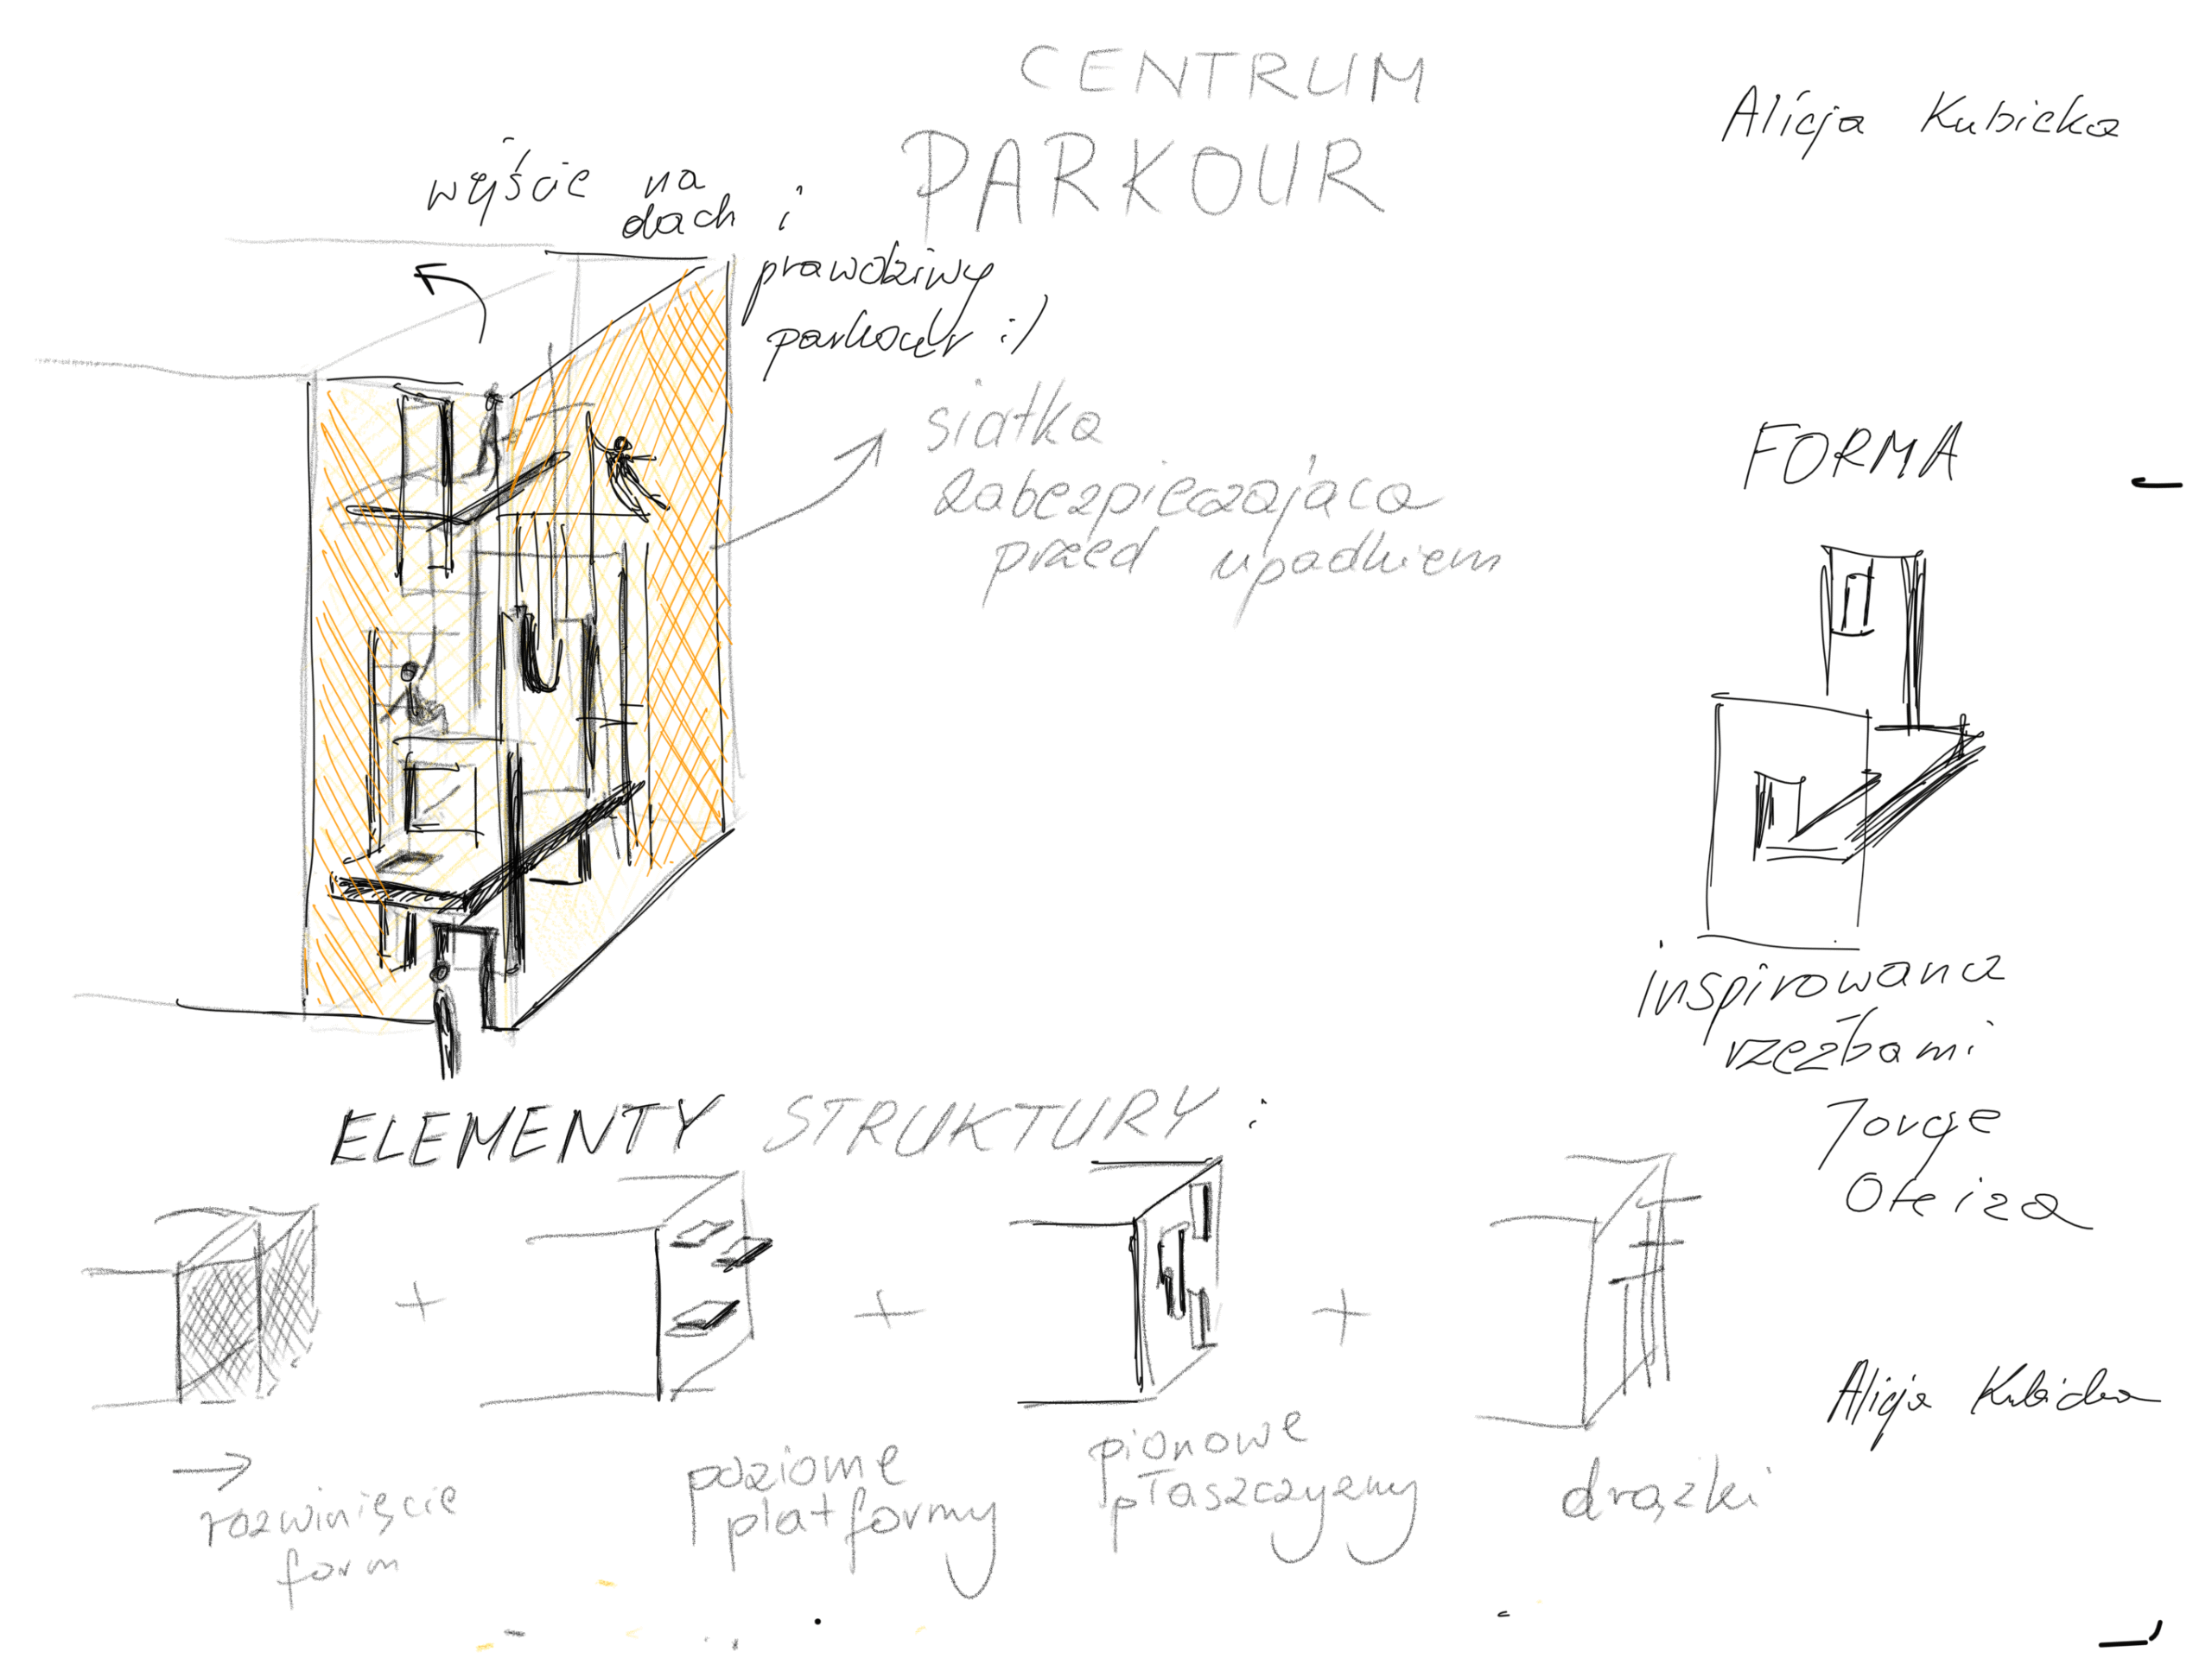 CENTRUM
PARKOUR
Alicja Kubicka
wejście na
dach i
prawdziwy
parkour :)
siatka
zabezpieczająca
przed upadkiem
FORMA
inspirowana
rzeźbami
Jorge
Oteiza
ELEMENTY STRUKTURY :
+ + +
→
rozwinięcie
form
poziome
platformy
pionowe
płaszczyzny
drążki
Alicja Kubicka